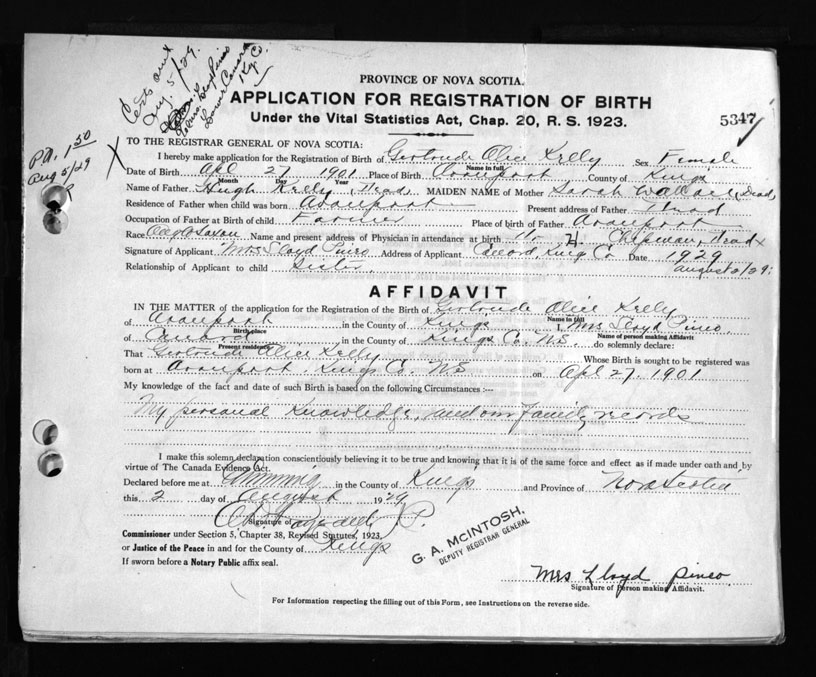 Aug 5/29.
PROVINCE OF NOVA SCOTIA.
APPLICATION FOR REGISTRATION OF BIRTH
Under the Vital Statistics Act, Chap. 20, R. S. 1923.
5347
Pd. 1.50
Aug 5/29
TO THE REGISTRAR GENERAL OF NOVA SCOTIA:
I hereby make application for the Registration of Birth of Gertrude Alice Kelly Sex Female
Name in full
Date of Birth Apl 27 1901 Place of Birth Avonport County of Kings
Month Day Year
Name of Father Hugh Kelly, Dead MAIDEN NAME of Mother Sarah Wallace (Dead)
Residence of Father when child was born Avonport Present address of Father Dead
Occupation of Father at Birth of child Farmer Place of birth of Father Avonport
Race Anglo Saxon Name and present address of Physician in attendance at birth Chipman, Dead
Signature of Applicant Mrs Lloyd Pineo Address of Applicant Kings Co Date 1929
Relationship of Applicant to child Sister August 2/29.
AFFIDAVIT
IN THE MATTER of the application for the Registration of the Birth of Gertrude Alice Kelly
Name in full
of Avonport in the County of Kings I, Mrs Lloyd Pineo.
Birth place Name of person making Affidavit
of in the County of Kings Co. N.S. do solemnly declare:
Present residence
That Gertrude Alice Kelly Whose Birth is sought to be registered was
born at Avonport, Kings Co. NS on Apl 27, 1901
My knowledge of the fact and date of such Birth is based on the following Circumstances :—
My personal Knowledge, and our family records
I make this solemn declaration conscientiously believing it to be true and knowing that it is of the same force and effect as if made under oath and by
virtue of The Canada Evidence Act.
Declared before me at in the County of Kings and Province of Nova Scotia
this 2 day of August 1929
Signature of J. P.
Commissioner under Section 5, Chapter 38, Revised Statutes, 1923,
or Justice of the Peace in and for the County of Kings
If sworn before a Notary Public affix seal.
G. A. McINTOSH,
DEPUTY REGISTRAR GENERAL
Mrs Lloyd Pineo
Signature of person making Affidavit.
For Information respecting the filling out of this Form, see Instructions on the reverse side.